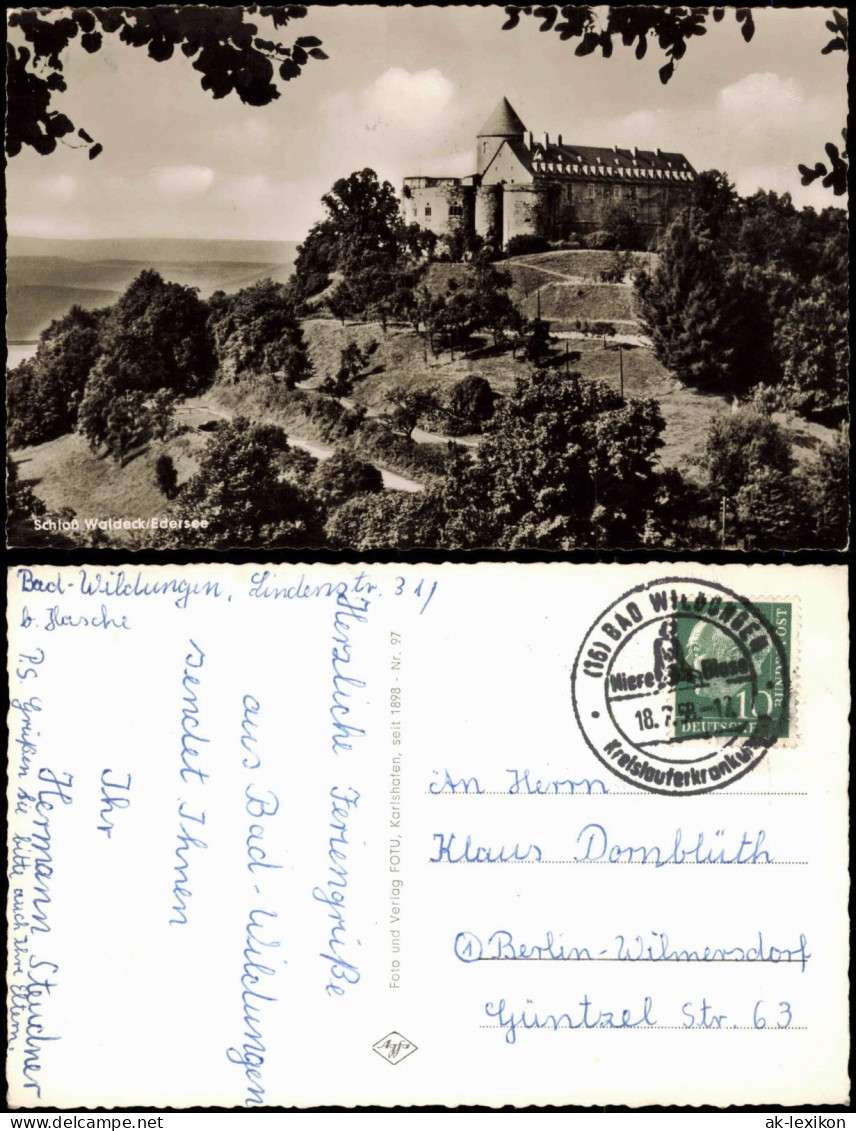 Schloß Waldeck/Edersee
Bad-Wildungen, Lindenstr. 31/
b. Flasche
Herzliche Feriengrüße
aus Bad-Wildungen
sendet Ihnen
Ihr
Hermann Steudner
P.S. Grüßen Sie bitte auch Ihre Eltern.
Foto und Verlag FOTU, Karlshafen, seit 1898 - Nr. 97
Agfa
(16) BAD WILDUNGEN
Niere Blase
18.7.58.-12
Kreislauferkrankun
10
DEUTSCHE
BUNDESPOST
An Herrn
Klaus Dornblüth
1 Berlin-Wilmersdorf
Güntzel Str. 63
www.delcampe.net
ak-lexikon